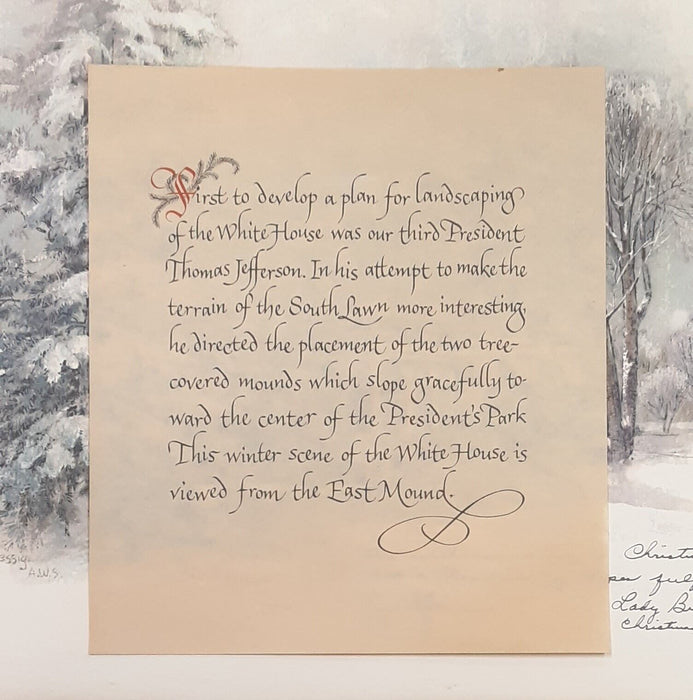 First to develop a plan for landscaping
of the White House was our third President
Thomas Jefferson. In his attempt to make the
terrain of the South Lawn more interesting,
he directed the placement of the two tree-
covered mounds which slope gracefully to-
ward the center of the President's Park
This winter scene of the White House is
viewed from the East Mound.
A.W.S.
Lady